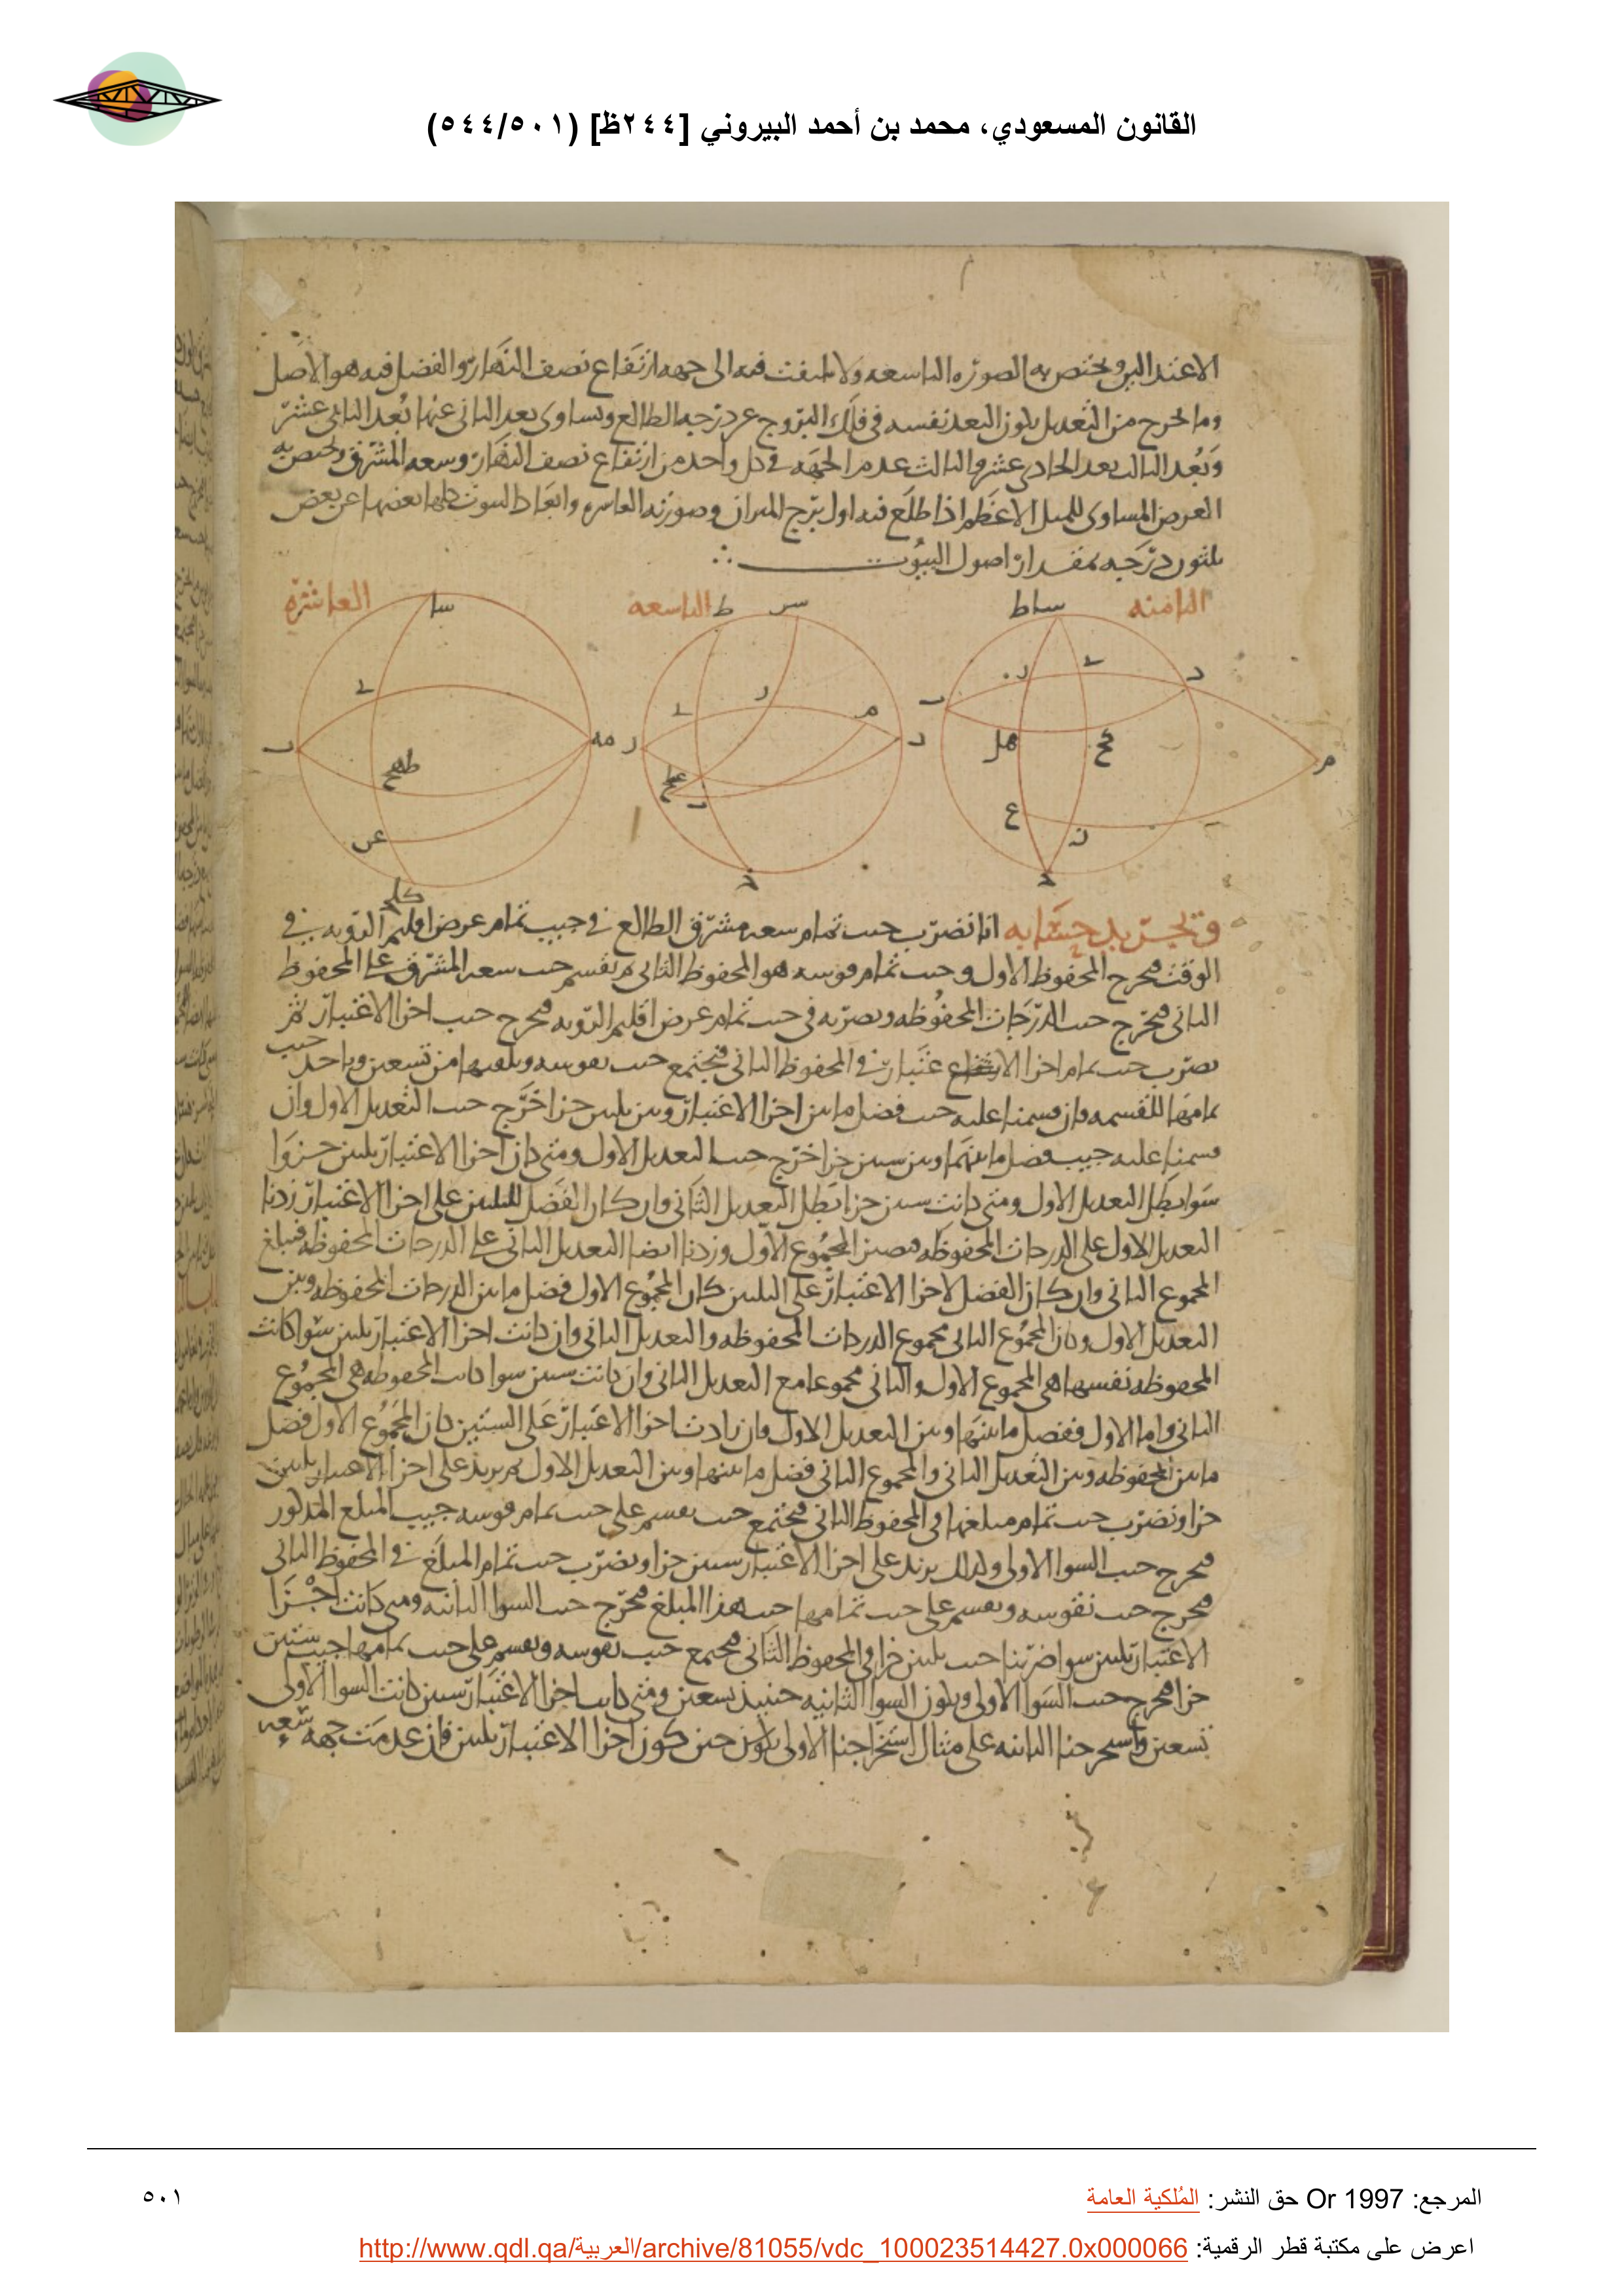 القانون المسعودي، محمد بن أحمد البيروني [٢٤٤ظ] (٥٤٤/٥٠١)
الاعند البرو يختص به الصوره التاسعه ولا يلتفت فيه الى جهه ارتفاع نصف النهار والفضل فيه هو الاصل
وما يخرج من التعديل يكون البعد نفسه فى فلك البروج عن درجه الطالع ويساوى بعد الثانى عنها بعد الثانى عشر
وبعد الثالث بعد الحادى عشر والثالث عدم الجهه فى كل واحد من ارتفاع نصف النهار وسعه المشرق ويختص به
العرض المساوى للميل الاعظم اذا طلع فيه اول برج الميزان وصورته العاشره وابعاد البيوت كلها بعضها عن بعض
ثلثون درجه بمقدار اصول البيوت
الثامنه
التاسعه
العاشره
وتجريد حسابه انا نضرب جيب تمام سعه مشرق الطالع فى جيب تمام عرض اقليم الرويه فى
الوقت فيخرج المحفوظ الاول وجيب تمام قوسه هو المحفوظ الثانى ثم نقسم جيب سعه المشرق على المحفوظ
الثانى فيخرج جيب الدرجات المحفوظه ونضربه فى جيب تمام عرض اقليم الرويه فيخرج جيب اجزا الاعتبار ثم
نضرب جيب تمام اجزا الاعتبار فى المحفوظ الثانى فيجتمع جيب نقوسه ونلقيها من تسعين وناخذ جيب
تمامها للقسمه فان قسمنا عليه جيب فضل ما بين اجزا الاعتبار وبين ثلثين جزا خرج جيب التعديل الاول وان
قسمنا عليه جيب فضل ما بينهما وبين ستين جزا خرج جيب التعديل الاول ومتى كان اجزا الاعتبار ثلثين جزوا
سوا بطل التعديل الاول ومتى كانت ستين جزا بطل التعديل الثانى وان كان الفضل للثلثين على اجزا الاعتبار زدنا
التعديل الاول على الدرجات المحفوظه فيصير المجموع الاول وزدنا ايضا التعديل الثانى على الدرجات المحفوظه فيبلغ
المجموع الثانى وان كان الفضل لاجزا الاعتبار على الثلثين كان المجموع الاول فضل ما بين الدرجات المحفوظه وبين
التعديل الاول وكان المجموع الثانى مجموع الدرجات المحفوظه والتعديل الثانى وان كانت اجزا الاعتبار ثلثين سوا كانت
المحفوظه نفسها هى المجموع الاول والثانى مجموعا مع التعديل الثانى وان كانت ستين سوا كانت المحفوظه هى المجموع
الثانى واما الاول ففضل ما بينها وبين التعديل الاول فان زادت اجزا الاعتبار على الستين كان المجموع الاول فضل
ما بين المحفوظه وبين التعديل الثانى والمجموع الثانى فضل ما بينها وبين التعديل الاول ثم نزيد على اجزا الاعتبار ثلثين
جزا ونضرب جيب تمام مبلغها فى المحفوظ الثانى فيجتمع جيب نقسم على جيب تمام قوسه جيب المبلغ المذكور
فيخرج جيب السوا الاولى وكذلك نزيد على اجزا الاعتبار ستين جزا ونضرب جيب تمام المبلغ فى المحفوظ الثانى
فيخرج جيب نقوسه ونقسم على جيب تمامها جيب هذا المبلغ فيخرج جيب السوا الثانيه ومتى كانت اجزا
الاعتبار ثلثين سوا ضربنا جيب ثلثين جزا فى المحفوظ الثانى فيجتمع جيب نقوسه ونقسم على جيب تمامها جيب ستين
جزا فيخرج جيب السوا الاولى ويكون السوا الثانيه حينيذ تسعين ومتى كانت اجزا الاعتبار ستين كانت السوا الاولى
تسعين واستخرجنا الثانيه على مثال استخراجنا الاولى يكون حين كون اجزا الاعتبار ثلثين فان عدمت جهه سعه
المرجع: Or 1997 حق النشر: المُلكية العامة
٥٠١
اعرض على مكتبة قطر الرقمية: http://www.qdl.qa/العربية/archive/81055/vdc_100023514427.0x000066